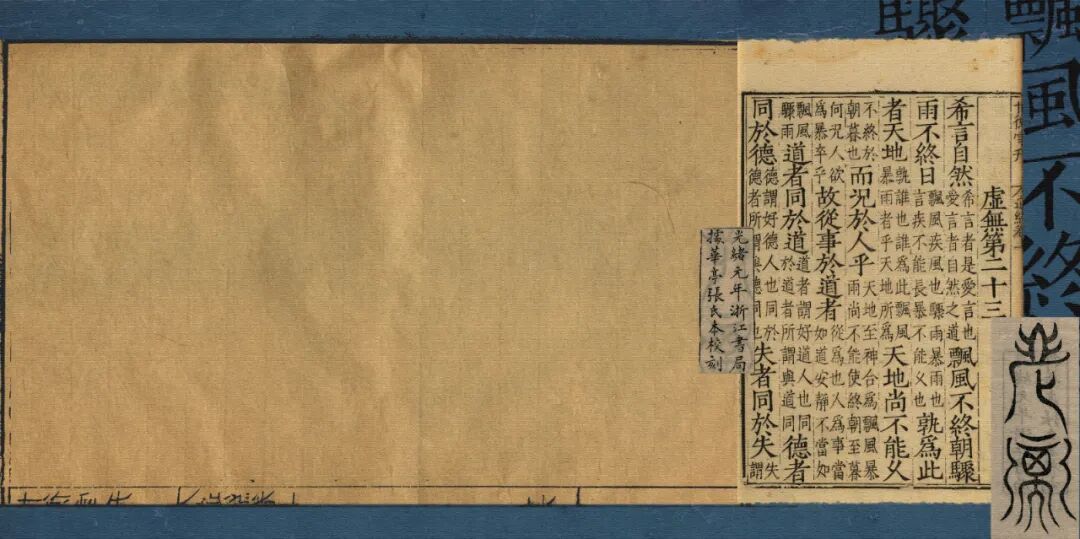 飄風不終
驟
虛無第二十三
希言自然希言者是愛言也愛言者自然之道飄風不終朝驟
雨不終日飄風疾風也驟雨暴雨也言疾不能長暴不能久也孰為此
者天地孰誰也誰為此飄風暴雨者乎天地所為天地尚不能久
不終於朝暮也而況於人乎天地至神合為飄風暴雨尚不能使終朝至暮
何況人欲為暴卒乎故從事於道者從為也人為事當如道安靜不當如
飄風驟雨道者同於道道者謂好道人也同於道者所謂與道同德者
同於德德謂好德人也同於德者所謂與德同也失者同於失失謂
光緒元年浙江書局
據華亭張氏本校刻